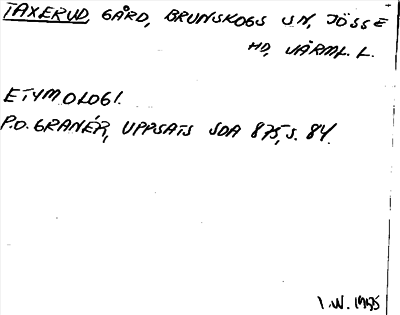 TAXERUD, GÅRD, BRUNSKOGS SN, JÖSSE
HD, VÄRML. L.
ETYMOLOGI.
P.O. GRANÉR, UPPSATS SDA 875, S. 84.
I.W. 1975